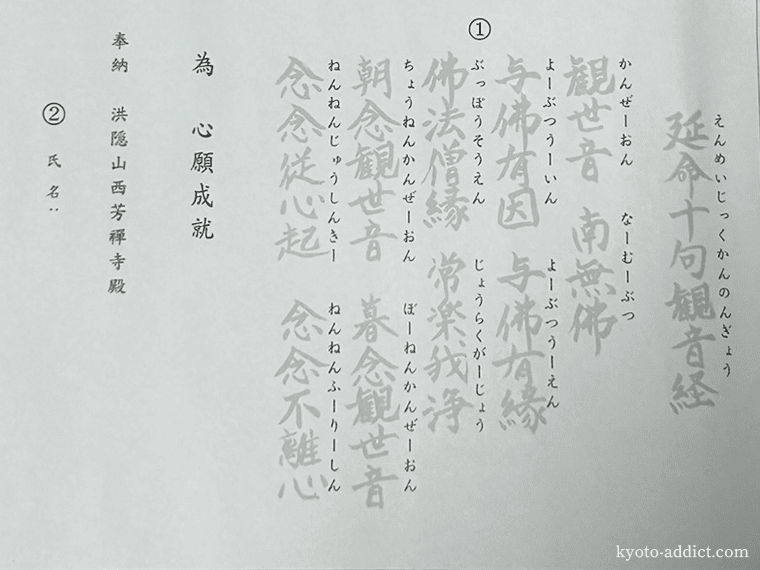 えんめいじっくかんのんぎょう
延命十句観音経
かんぜーおん なーむーぶつ
観世音 南無佛
よーぶつうーいん よーぶつうーえん
与佛有因 与佛有縁
①
ぶっぽうそうえん じょうらくがーじょう
佛法僧縁 常楽我浄
ちょうねんかんぜーおん ぼーねんかんぜーおん
朝念観世音 暮念観世音
ねんねんじゅうしんきー ねんねんふーりーしん
念念従心起 念念不離心
為 心願成就
奉納 洪隠山西芳禪寺殿
② 氏名：
kyoto-addict.com